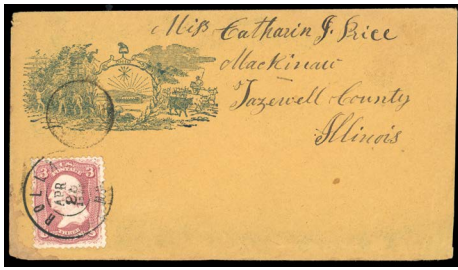 Miss Catharin J. Price
Mackinaw
Tazewell County
Illinois
3 3
ROLLA
APR